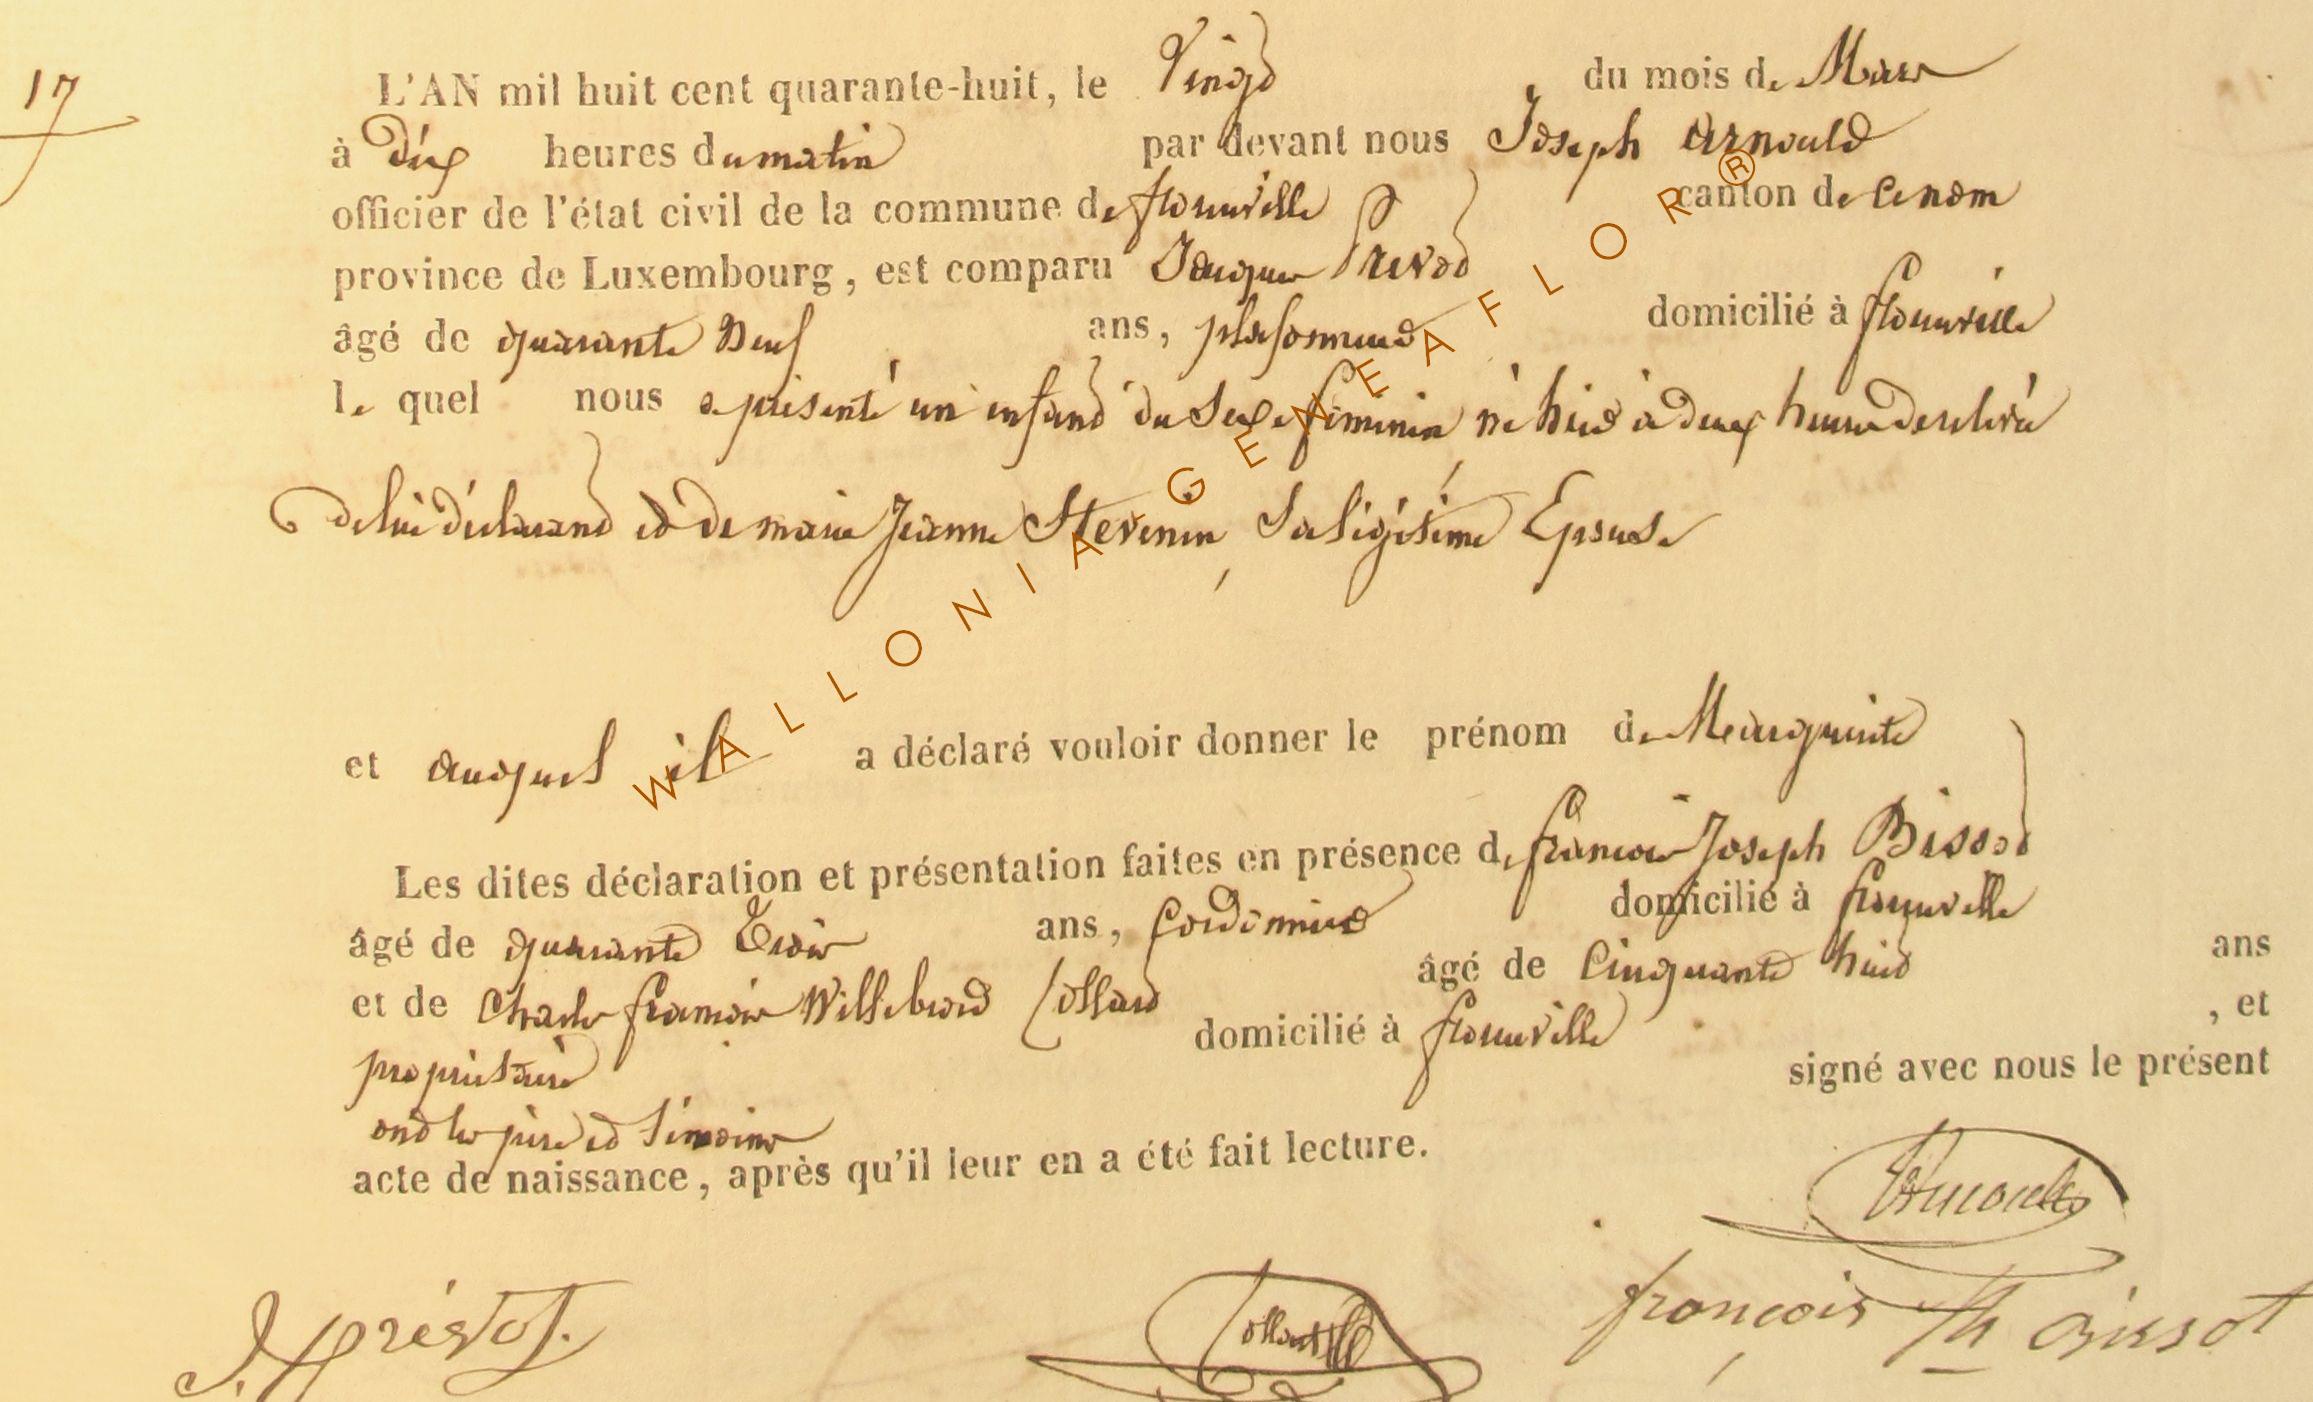 17
L'AN mil huit cent quarante-huit, le Vingt du mois de Mars
à dix heures du matin par devant nous Joseph Arnould
officier de l'état civil de la commune de florenville canton de
province de Luxembourg, est comparu Jacques Prevot
âgé de quarante neuf ans, plafonneur domicilié à florenville
le quel nous a présenté un enfant du Sexe feminin né hier à deux heures
de lui déclarant et de marie Jeanne Stevenin, Sa légitime Epouse
et auquel il a déclaré vouloir donner le prénom de Marguerite
Les dites déclaration et présentation faites en présence de françois Joseph Bissot
âgé de quarante Trois ans, Cordonnier domicilié à florenville
et de Charles françois Willebrord Collard âgé de Cinquante huit ans
propriétaire domicilié à florenville , et
ont les père et témoins signé avec nous le présent
acte de naissance, après qu'il leur en a été fait lecture.
Arnould
J. prévot. Collard françois Jh Bissot
WALLONIA-GENEAFLOR®